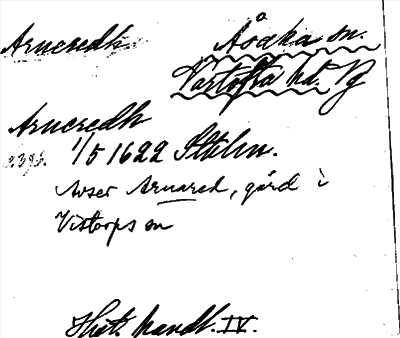 Arneredh Åsaka sn.
Vartofta hd. Vg
Arneredh
1/5 1622 Sthlm.
Avser Arnared, gård i
Vistorps sn
Hist. handl. IV.